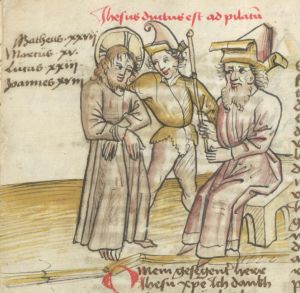 Jhesus ductus est ad pilatum
Matheus · xxvii
Marcus · xv ·
Lucas · xxiii
Joannes · xviii
O Mein gesegent herre
Jhesu xpe ich danck